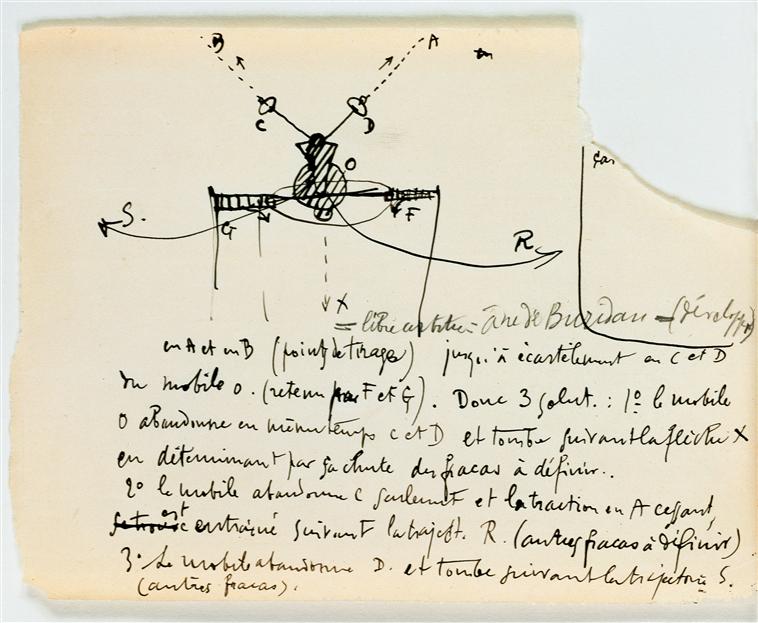 B
A
en
C
D
O
Cas
S.
G
F
R
X
= libre arbitre = Âne de Buridan = (développer)
en A et en B (points de tirage) jusqu'à écartèlement en C et D
du mobile O. (retenu par F et G). Donc 3 solut. : 1º le mobile
O abandonne en même temps C et D et tombe suivant la flèche X
en déterminant par sa chute des fracas à définir..
2º le mobile abandonne C seulement et la traction en A cessant,
est entrainé suivant la traject. R. (autres fracas à définir)
3º Le mobile abandonne D. et tombe suivant la trajectoire S.
(autres fracas).